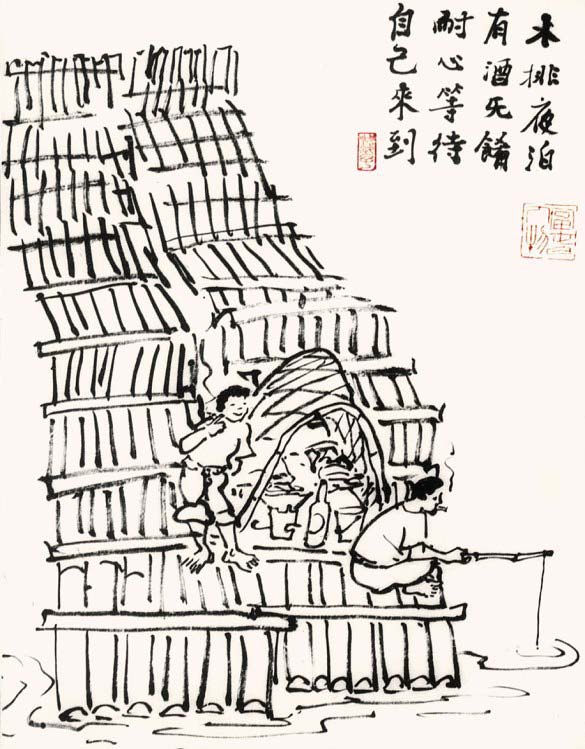 木排夜泊
有酒无餚
耐心等待
自己來到